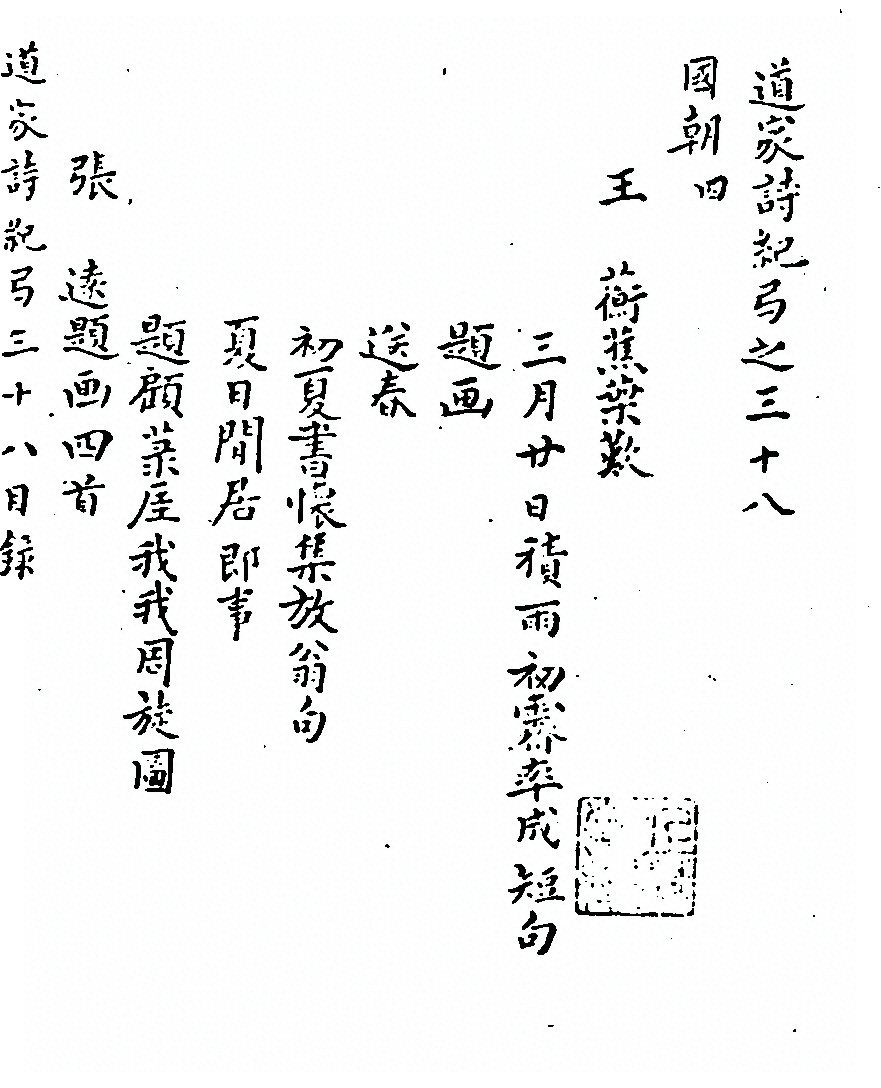 道家詩紀弓之三十八
國朝四
王　蘅蕉葉歎
三月廿日積雨初霽率成短句
題画
送春
初夏書懷集放翁句
夏日閒居即事
題顧菉厓我我周旋圖
張　遠題画四首
道家詩紀弓三十八目錄